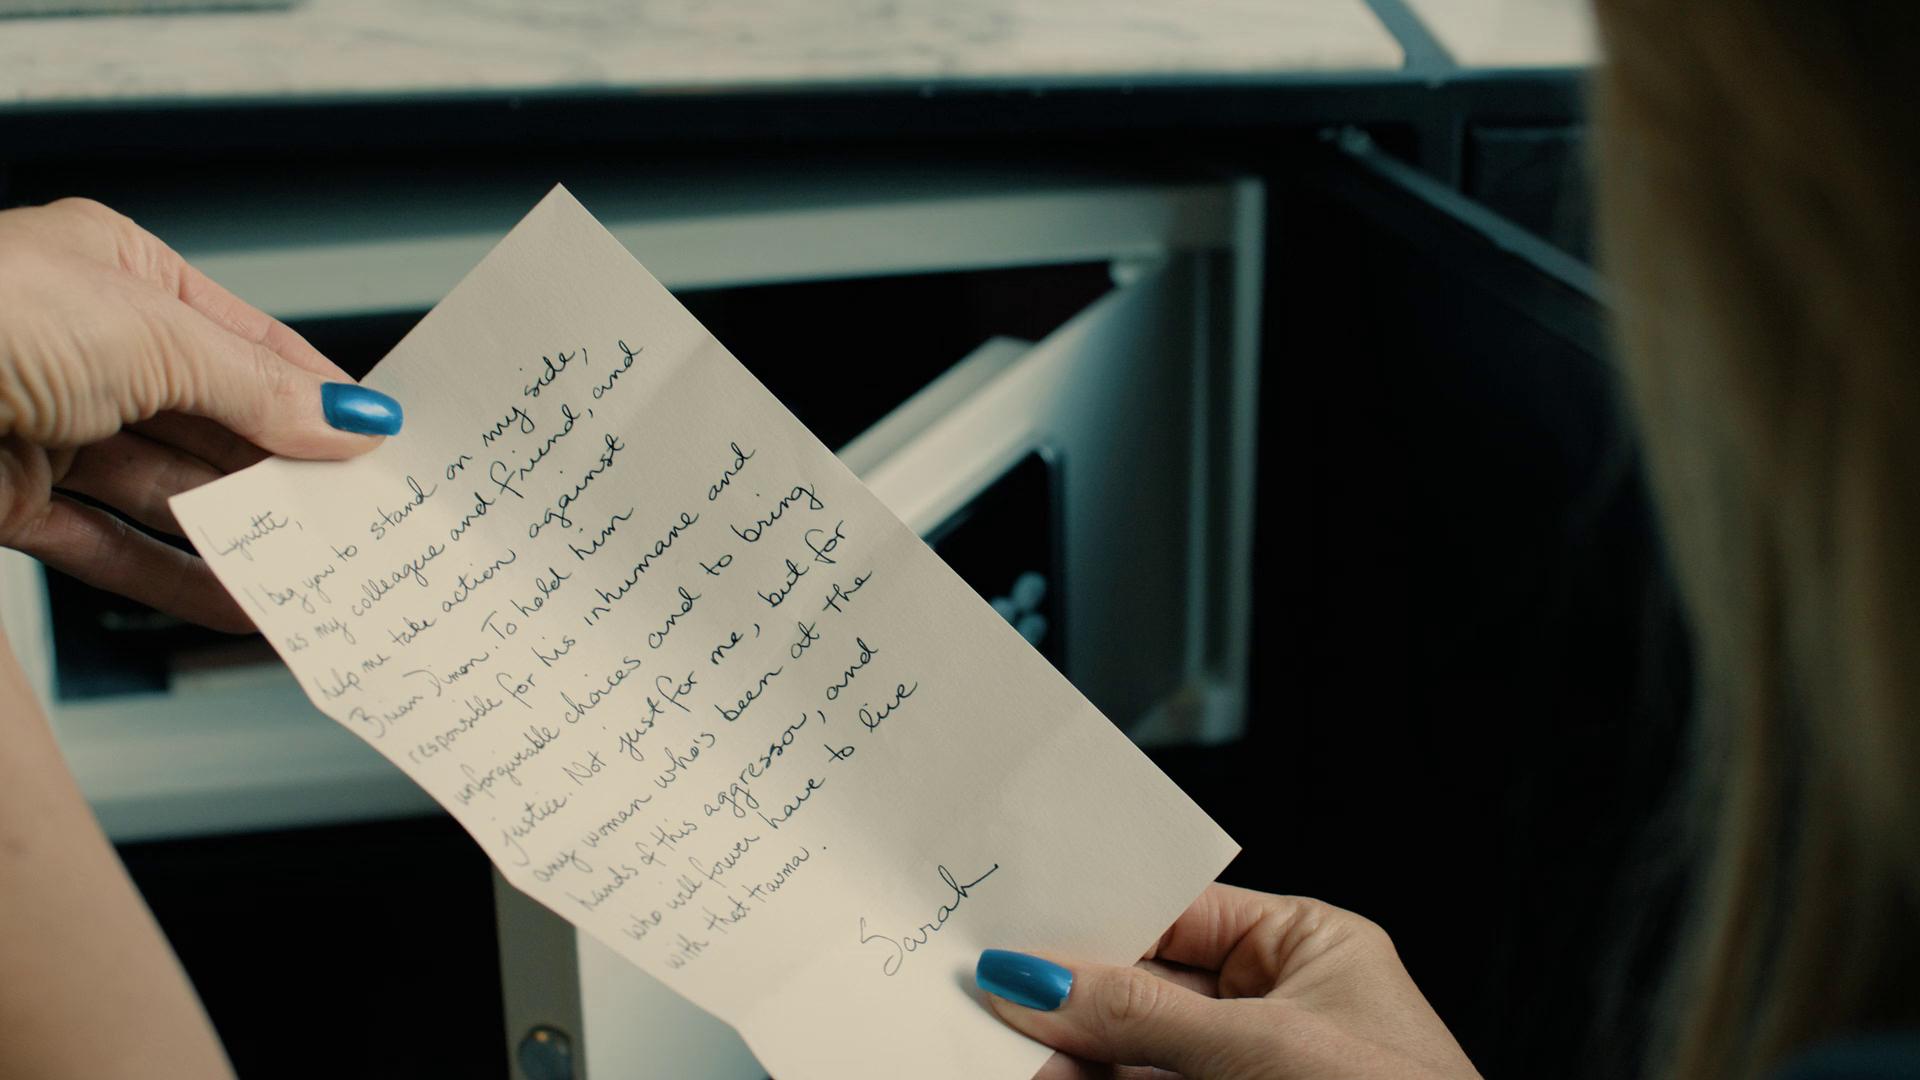 Lynette,
I beg you to stand on my side,
as my colleague and friend, and
help me take action against
Brian Dimon. To hold him
responsible for his inhumane and
unforgivable choices and to bring
justice. Not just for me, but for
any woman who's been at the
hands of this aggressor, and
who will forever have to live
with that trauma.
Sarah